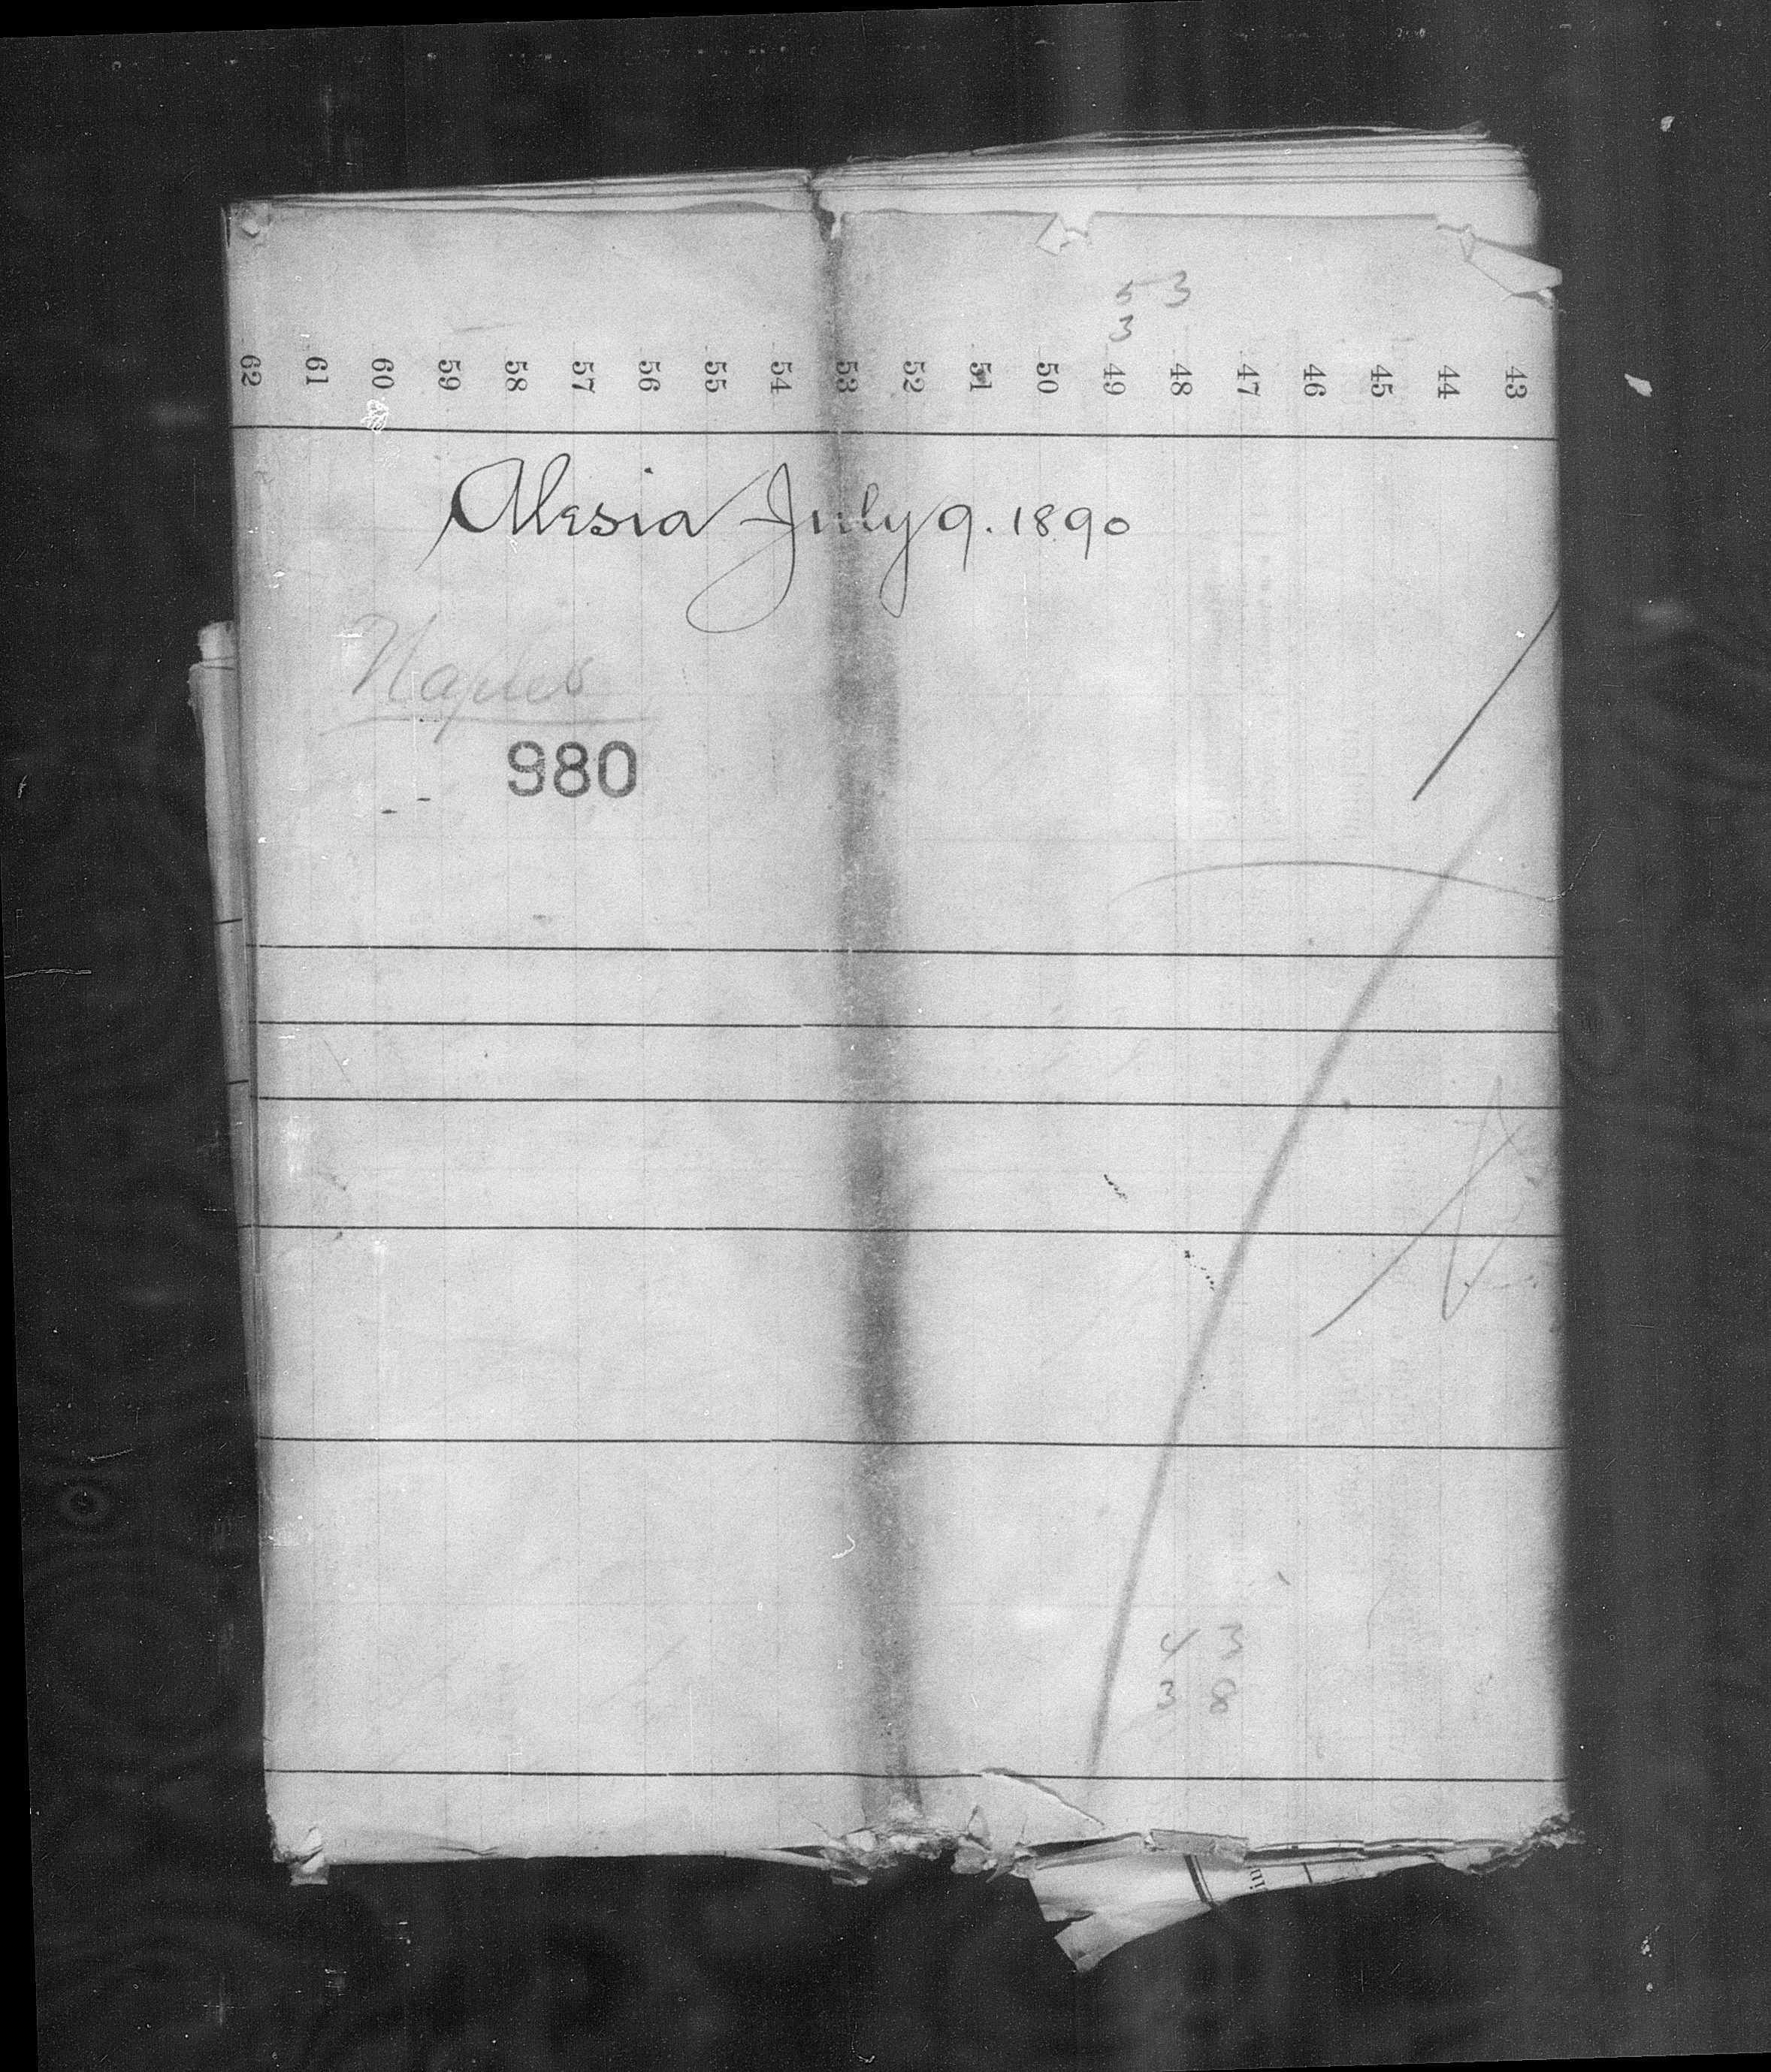 53
3
62 61 60 59 58 57 56 55 54 53 52 51 50 49 48 47 46 45 44 43
Alesia July 9. 1890
Naples
980
4 3
3 8